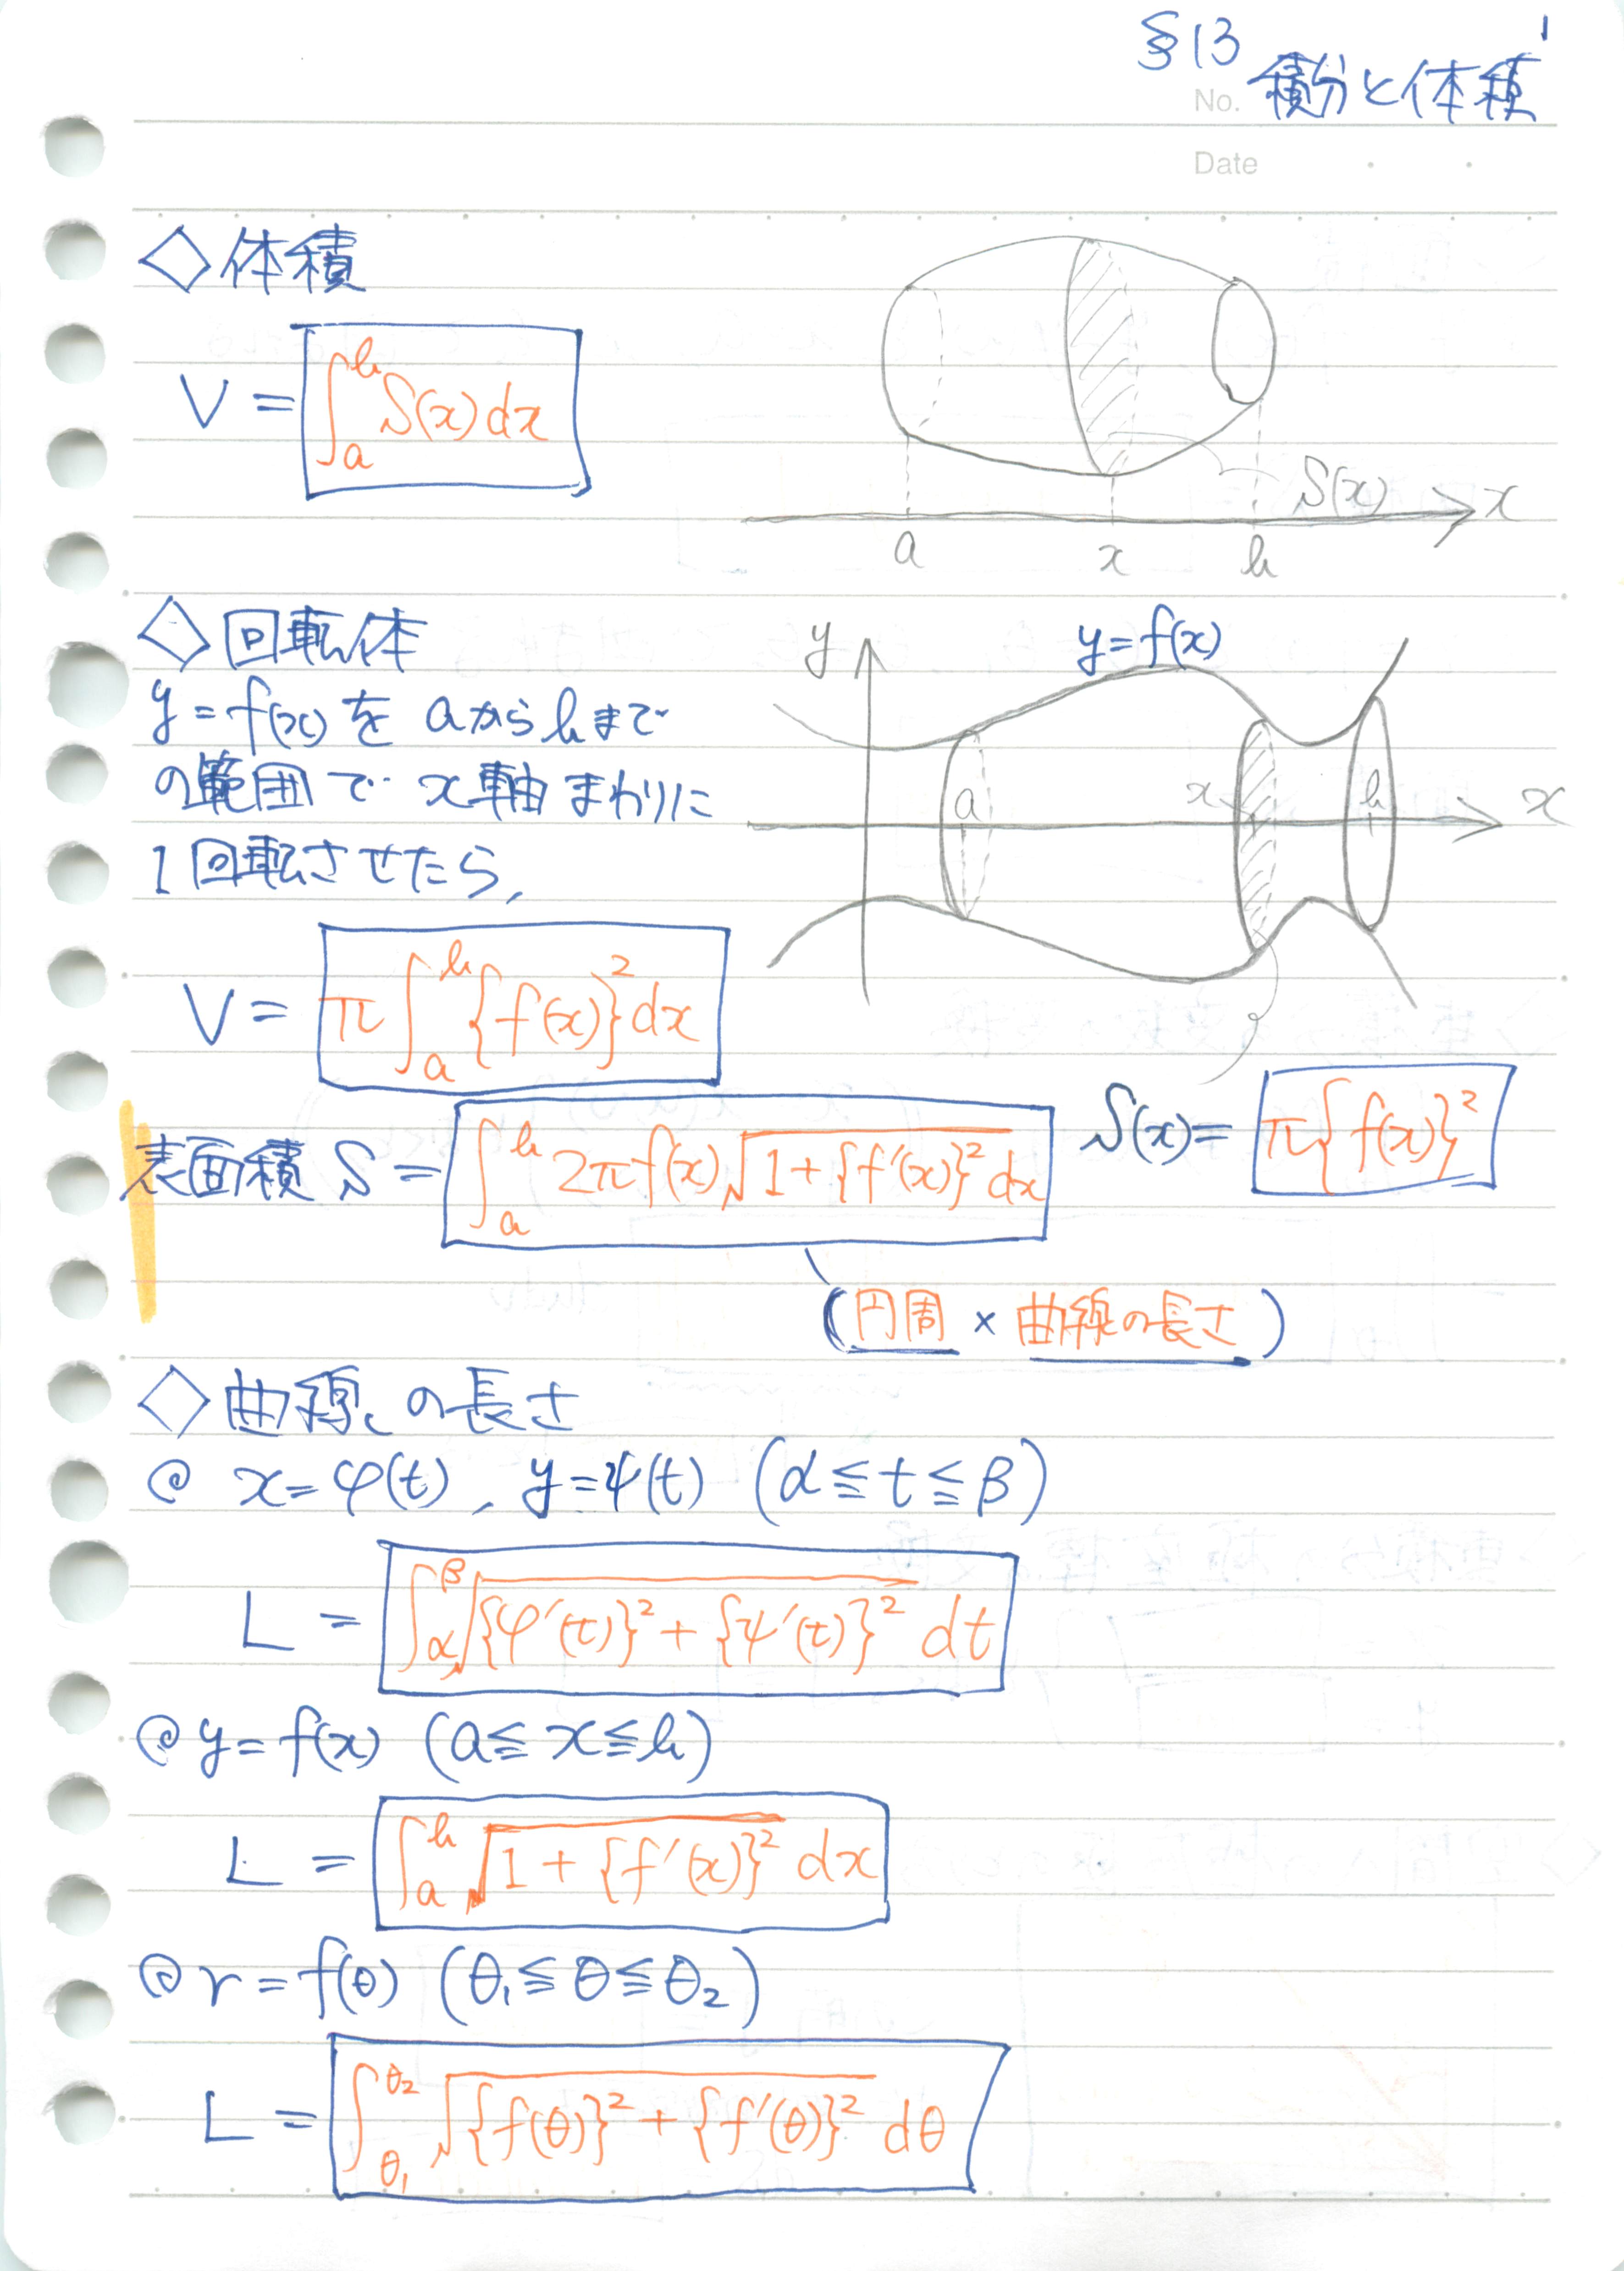 §13 積分と体積 1
No.
Date
◇体積
V = ∫_a^b S(x) dx
S(x)
x
a x b
◇回転体
y = f(x) を aからbまで
の範囲で x軸まわりに
1回転させたら,
y
y=f(x)
a x b x
V = π∫_a^b {f(x)}² dx
S(x) = π{f(x)}²
表面積 S = ∫_a^b 2πf(x)√(1+{f'(x)}²) dx
(円周 × 曲線の長さ)
◇曲線の長さ
@ x=φ(t), y=ψ(t) (α≦t≦β)
L = ∫_α^β √({φ'(t)}² + {ψ'(t)}²) dt
@ y=f(x) (a≦x≦b)
L = ∫_a^b √(1+{f'(x)}²) dx
@ r=f(θ) (θ₁≦θ≦θ₂)
L = ∫_θ₁^θ₂ √({f(θ)}² + {f'(θ)}²) dθ